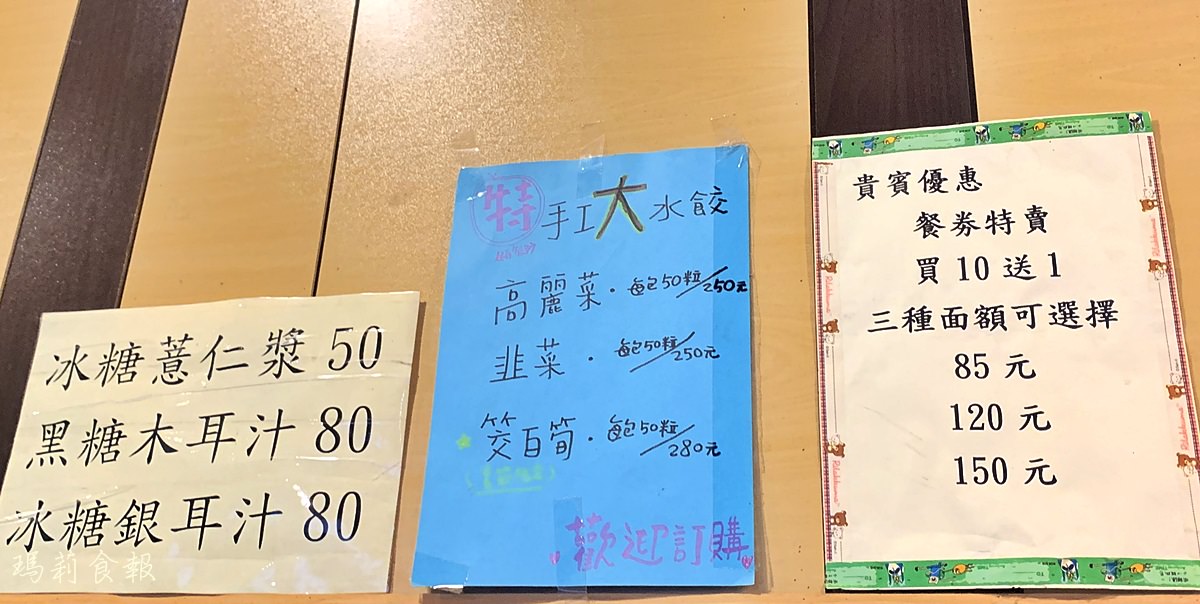 冰糖薏仁漿 50
黑糖木耳汁 80
冰糖銀耳汁 80
瑪莉食報
特 手工大水餃
高麗菜．每包50粒/250元
韭菜．每包50粒/250元
筊白筍．每包50粒/280元
歡迎訂購
貴賓優惠
餐券特賣
買 10 送 1
三種面額可選擇
85 元
120 元
150 元